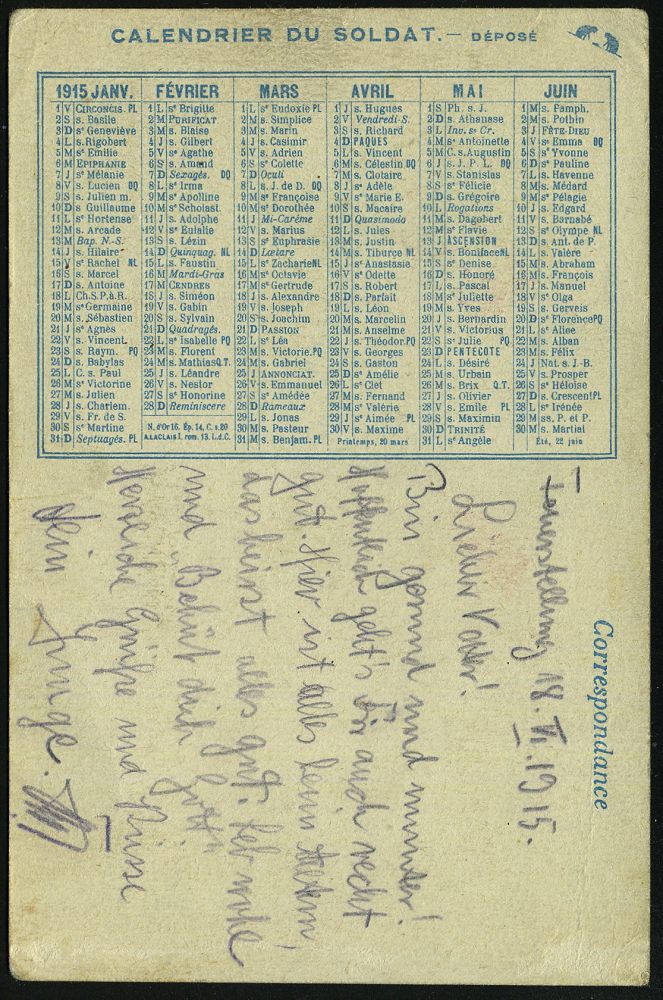 CALENDRIER DU SOLDAT.— DÉPOSÉ
1915 JANV.
1 V CIRCONCIS. PL
2 S s. Basile
3 D sᵉ Geneviève
4 L s. Rigobert
5 M sᵉ Emilie
6 M EPIPHANIE
7 J sᵉ Mélanie
8 V s. Lucien DQ
9 S s. Julien m.
10 D s. Guillaume
11 L sᵉ Hortense
12 M s. Arcade
13 M Bap. N.-S.
14 J s. Hilaire
15 V sᵉ Rachel NL
16 S s. Marcel
17 D s. Antoine
18 L Ch.S.P.à.R.
19 M sᵉ Germaine
20 M s. Sébastien
21 J sᵉ Agnès
22 V s. Vincent.
23 S s. Raym. PQ
24 D s. Babylas
25 L C. s. Paul
26 M sᵉ Victorine
27 M s. Julien
28 J s. Charlem.
29 V s. Fr. de S.
30 S sᵉ Martine
31 D Septuagés. PL
FÉVRIER
1 L sᵉ Brigitte
2 M PURIFICAT
3 M s. Blaise
4 J s. Gilbert
5 V sᵉ Agathe
6 S s. Amand
7 D Sexagés. DQ
8 L sᵉ Irma
9 M sᵉ Apolline
10 M sᵉ Scholast.
11 J s. Adolphe
12 V sᵉ Eulalie
13 S s. Lézin
14 D Quinquag. NL
15 L s. Faustin
16 M Mardi-Gras
17 M CENDRES
18 J s. Siméon
19 V s. Gabin
20 S s. Sylvain
21 D Quadragés.
22 L sᵉ Isabelle PQ
23 M s. Florent
24 M s. Mathias Q.T.
25 J s. Léandre
26 V s. Nestor
27 S sᵉ Honorine
28 D Reminiscere
N. d'Or 16. Ép. 14, C. s. 20
A.LACLAIS I. rom. 13. L.d.C.
MARS
1 L sᵉ Eudoxie PL
2 M s. Simplice
3 M s. Marin
4 J s. Casimir
5 V s. Adrien
6 S sᵉ Colette
7 D Oculi
8 L s. J. de D. DQ
9 M sᵉ Françoise
10 M sᵉ Dorothée
11 J Mi-Carême
12 V s. Marius
13 S sᵉ Euphrasie
14 D Lætare
15 L s. Zacharie NL
16 M sᵉ Octavie
17 M sᵉ Gertrude
18 J s. Alexandre
19 V s. Joseph
20 S s. Joachim
21 D PASSION
22 L sᵉ Léa
23 M s. Victorie. PQ
24 M s. Gabriel
25 J ANNONCIAT.
26 V s. Emmanuel
27 S sᵉ Amédée
28 D Rameaux
29 L s. Jonas
30 M s. Pasteur
31 M s. Benjam. PL
AVRIL
1 J s. Hugues
2 V Vendredi-S.
3 S s. Richard
4 D PAQUES
5 L s. Vincent
6 M s. Célestin DQ
7 M s. Clotaire
8 J sᵉ Adèle
9 V sᵉ Marie E.
10 S s. Macaire
11 D Quasimodo
12 L s. Jules
13 M s. Justin
14 M s. Tiburce NL
15 J sᵉ Anastasie
16 V sᵉ Odette
17 S s. Robert
18 D s. Parfait
19 L s. Léon
20 M s. Marcelin
21 M s. Anselme
22 J s. Théodor. PQ
23 V s. Georges
24 S s. Gaston
25 D sᵉ Amélie
26 L sᵉ Clet
27 M s. Fernand
28 M sᵉ Valérie
29 J sᵉ Aimée PL
30 V s. Maxime
Printemps, 20 mars
MAI
1 S Ph. s. J.
2 D s. Athanase
3 L Inv. sᵉ Cr.
4 M sᵉ Antoinette
5 M C.s.Augustin
6 J s. J. P. L. DQ
7 V s. Stanislas
8 S sᵉ Félicie
9 D s. Grégoire
10 L Rogations
11 M s. Dagobert
12 M sᵉ Flavie
13 J ASCENSION
14 V s. Boniface NL
15 S sᵉ Denise
16 D s. Honoré
17 L s. Pascal
18 M sᵉ Juliette
19 M s. Yves
20 J s. Bernardin
21 V s. Victorius
22 S sᵉ Julie PQ
23 D PENTECOTE
24 L s. Désiré
25 M s. Urbain
26 M s. Brix Q.T.
27 J s. Olivier
28 V s. Emile PL
29 S s. Maximin
30 D TRINITÉ
31 L sᵉ Angèle
JUIN
1 M s. Pamph.
2 M s. Pothin
3 J FÊTE-DIEU
4 V sᵉ Emma DQ
5 S sᵉ Yvonne
6 D sᵉ Pauline
7 L s. Havenne
8 M s. Médard
9 M sᵉ Pélagie
10 J s. Edgard
11 V s. Barnabé
12 S sᵉ Olympe NL
13 D s. Ant. de P.
14 L s. Valère
15 M s. Abraham
16 M s. François
17 J s. Manuel
18 V sᵉ Olga
19 S s. Gervais
20 D sᵉ Florence PQ
21 L sᵉ Alice
22 M s. Alban
23 M s. Félix
24 J Nat. s. J.-B.
25 V s. Prosper
26 S sᵉ Héloïse
27 D s. Crescent PL
28 L sᵉ Irénée
29 M ss. P. et P.
30 M s. Martial
Été, 22 juin
Correspondance
Feuerstellung 18. VI. 1915.
Lieber Vater!
Bin gesund und munter!
Hoffentlich geht's Dir auch recht
gut. Hier ist alls beim Alten,
das heisst alles gut. Leb wohl
und „Behüt dich Gott"
Herzliche Grüße und Küsse
Dein Junge.